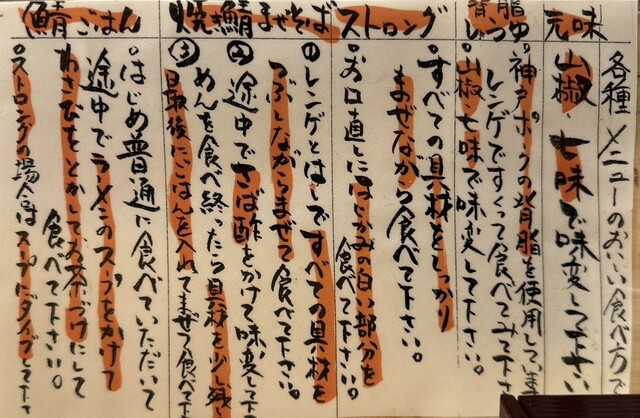 各種メニューのおいしい食べ方で
元味
山椒 七味で味変して下さい
背脂
神戸ポークの背脂を使用しています
レンゲですくって食べてみて下さ
山椒七味で味変して下さい。
ストロング
すべての具材をしっかり
まぜながら食べて下さい。
お口直しにはじかみの白い部分を
食べて下さい。
焼き鯖まぜそば
①レンゲとはしですべての具材を
つぶしながらまぜて食べて下さい。
②途中でさば酢をかけて味変して下
めんを食べ終ったら具材を少し残し
③最後にごはんを入れてまぜて食べて下
鯖ごはん
はじめ普通に食べていただいて
途中でラーメンのスープをかけて
わさびをとかしてお茶づけにして
食べて下さい。
ストロングの場合はスープにダイブして下さ